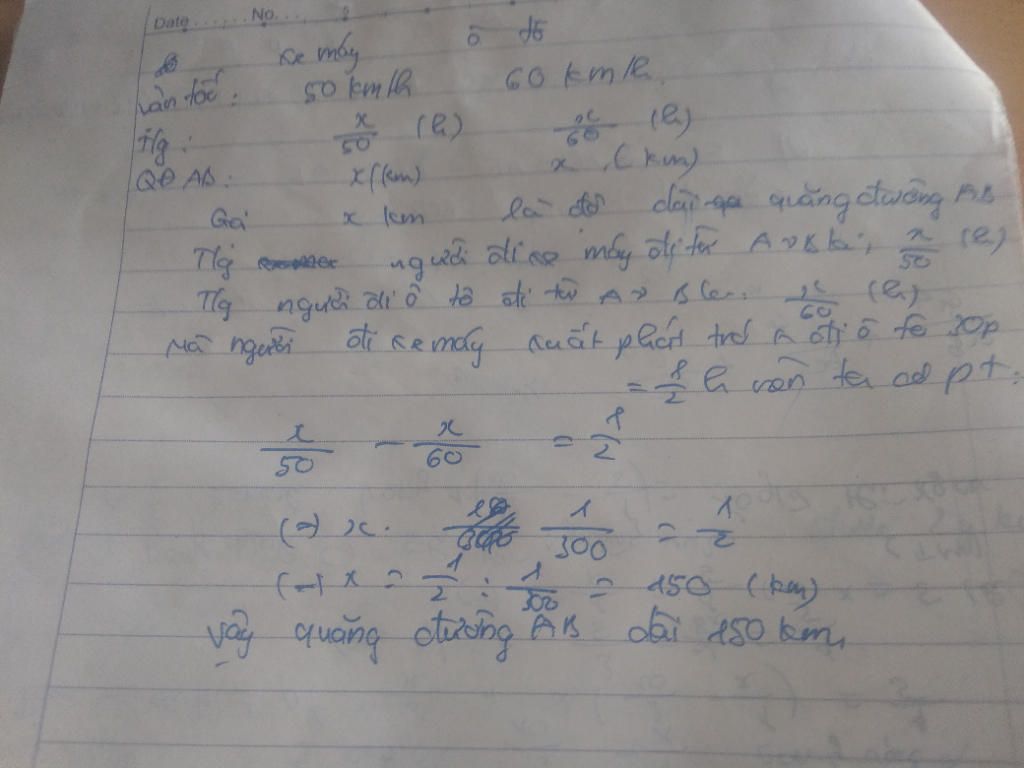 Date ...... No. ...
xe máy ô tô
vận tốc: 50 km/h 60 km/h
Tg: x/50 (h) x/60 (h)
QĐ AB: x (km) x (km)
Gọi x km là độ dài quãng đường AB
Tg người đi xe máy đi từ A→B là: x/50 (h)
Tg người đi ô tô đi từ A→B là: x/60 (h)
mà người đi xe máy xuất phát đi ô tô 30p
= 1/2 h ta có pt:
x/50 - x/60 = 1/2
(=) x. 1/300 = 1/2
(=) x = 1/2 : 1/300 = 150 (km)
vậy quãng đường AB dài 150 km,